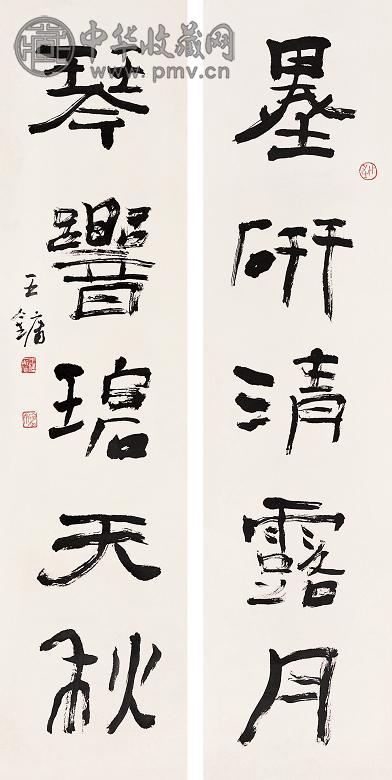 中华收藏网
www.pmv.cn
墨研清露月
琴響碧天秋
王鏞